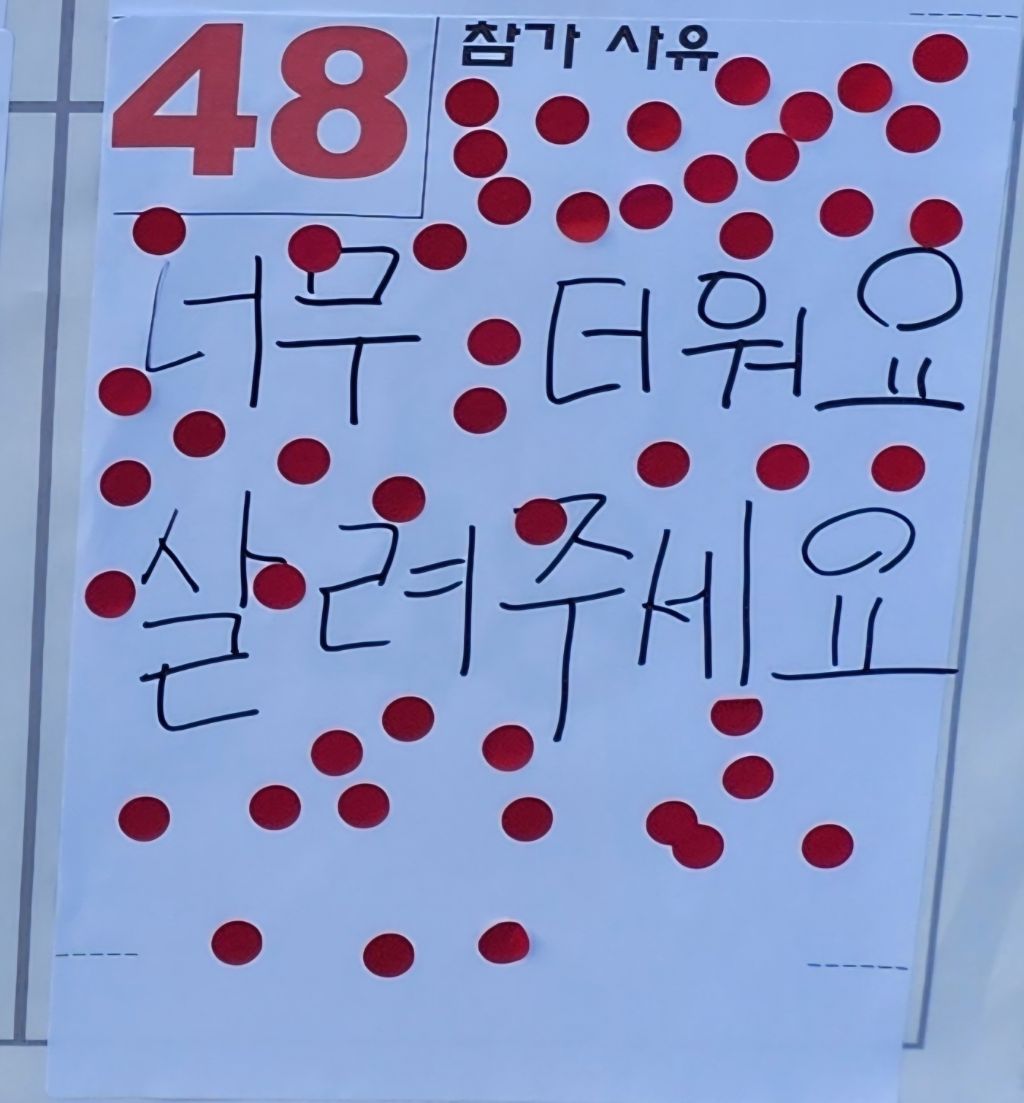 48
참가 사유
너무 더워요
살려주세요